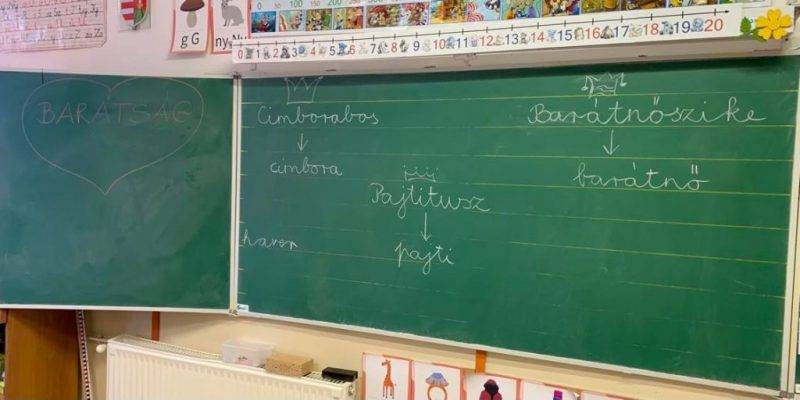 50 100
g G
ny Ny
0 1 2 3 4 5 6 7 8 9 10 11 12 13 14 15 16 17 18 19 20
BARÁTSÁG
Cimborabos
cimbora
Pajtitusz
pajti
haver
Barátnőszike
barátnő